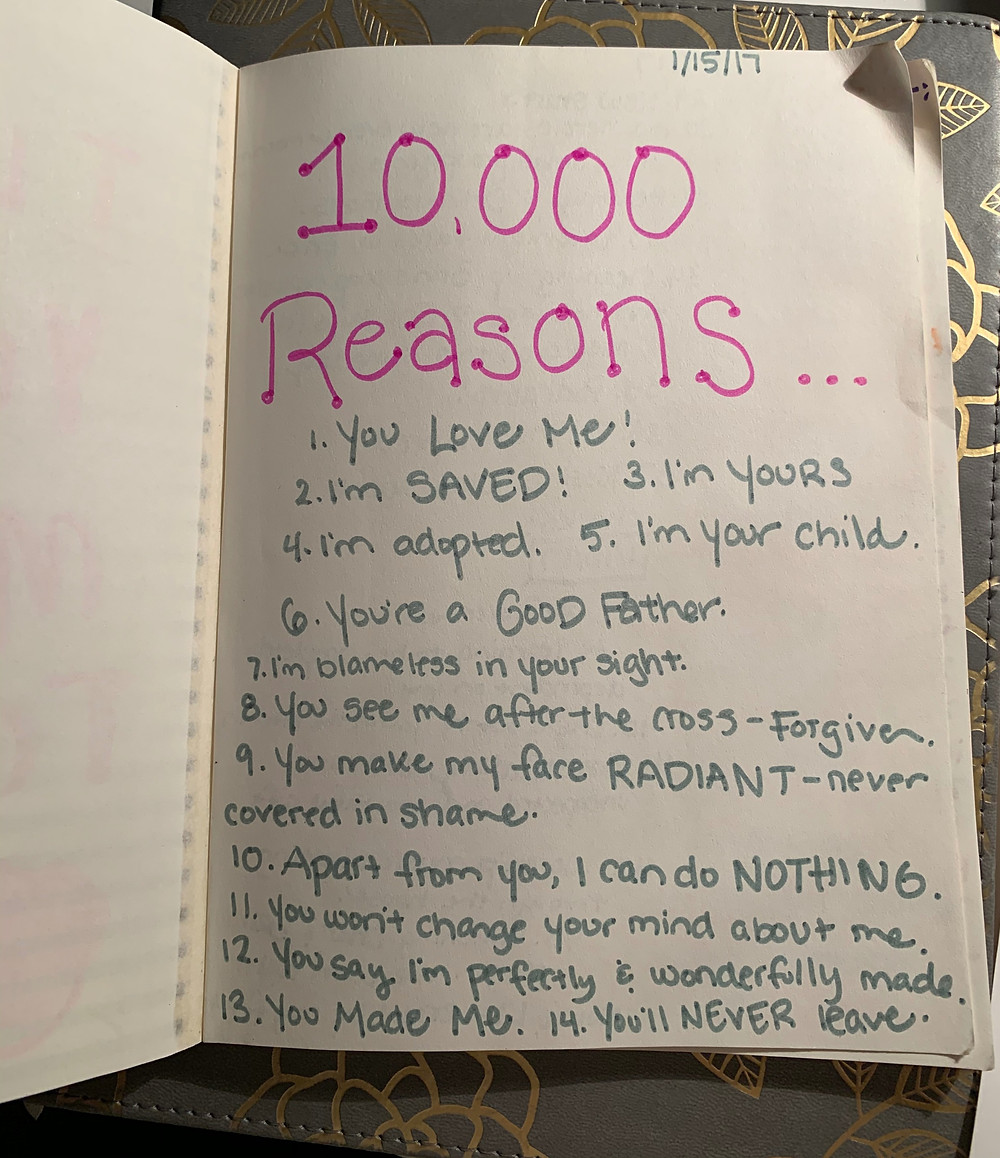 1/15/17
10,000
Reasons...
1. You Love Me!
2. I'm SAVED! 3. I'm YOURS
4. I'm adopted. 5. I'm your child.
6. You're a GOOD Father.
7. I'm blameless in your sight.
8. You see me after the cross - Forgiven.
9. You make my face RADIANT - never
covered in shame.
10. Apart from you, I can do NOTHING.
11. You won't change your mind about me.
12. You say I'm perfectly & wonderfully made.
13. You Made Me. 14. You'll NEVER leave.